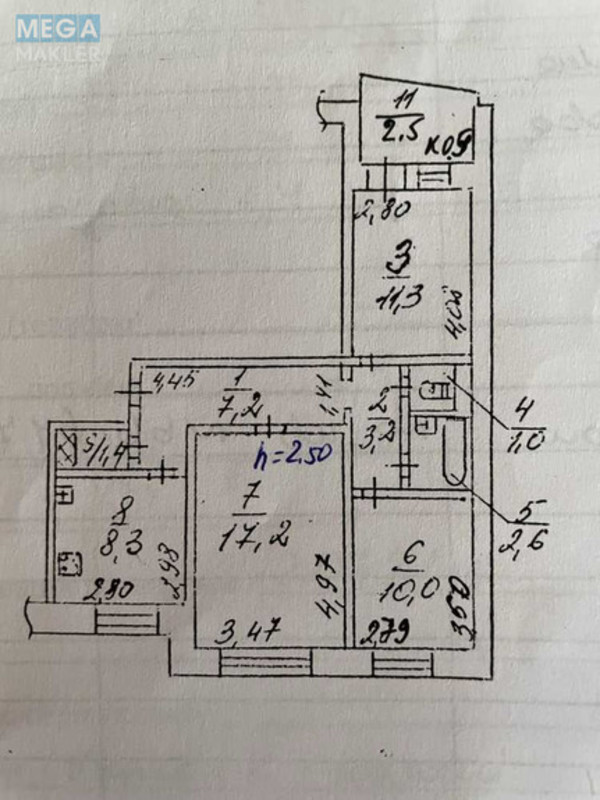 MEGA
MAKLER
11
2.5
к0,9
2,80
3
11,3
4,02
4,45
1
7,2
1,41
2
3,2
4
1,0
5
2,6
h=2.50
7
17,2
4,97
3,47
8
8,3
2,98
2,80
6
10,0
2,79